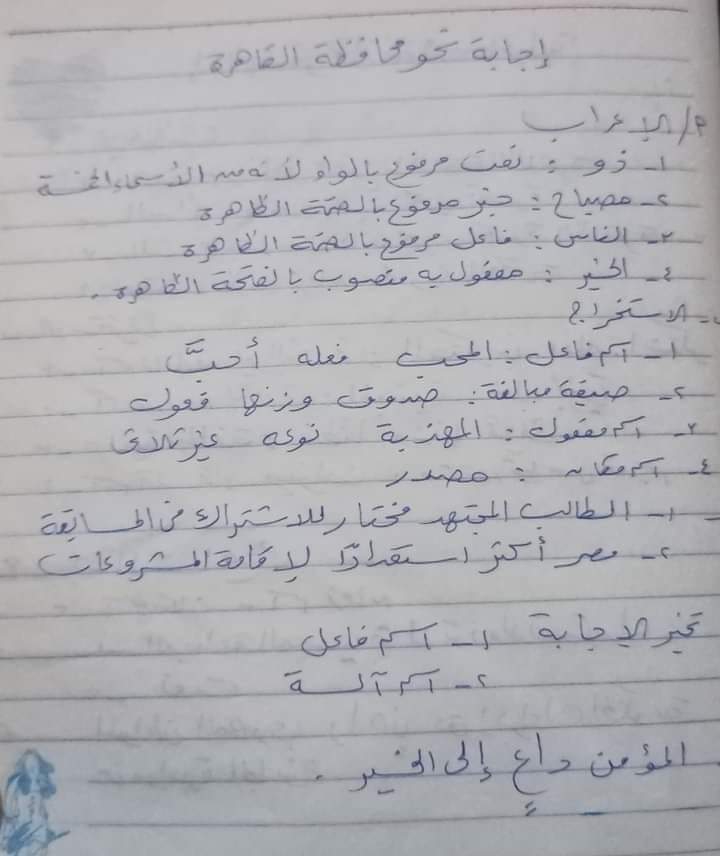 إجابة نحو محافظة القاهرة
٢/ الإعراب
١- ذو : نعت مرفوع بالواو لأنه من الأسماء الخمسة
٢- مصباح : خبر مرفوع بالضمة الظاهرة
٣- الناس : فاعل مرفوع بالضمة الظاهرة
٤- الخير : مفعول به منصوب بالفتحة الظاهرة .
- الاستخراج
١- اسم فاعل : المحب فعله أحبَّ
٢- صيغة مبالغة : صدوق وزنها فعول
٣- اسم مفعول : المهذبة نوعه غير ثلاثى
٤- اسم مكان : مصدر
١- الطالب المجتهد مختار للاشتراك فى المسابقة
٢- مصر أكثر استعدادًا لإقامة المشروعات
تخير الإجابة ١- اسم فاعل
٢- اسم آلة
المؤمن داعٍ إلى الخير .